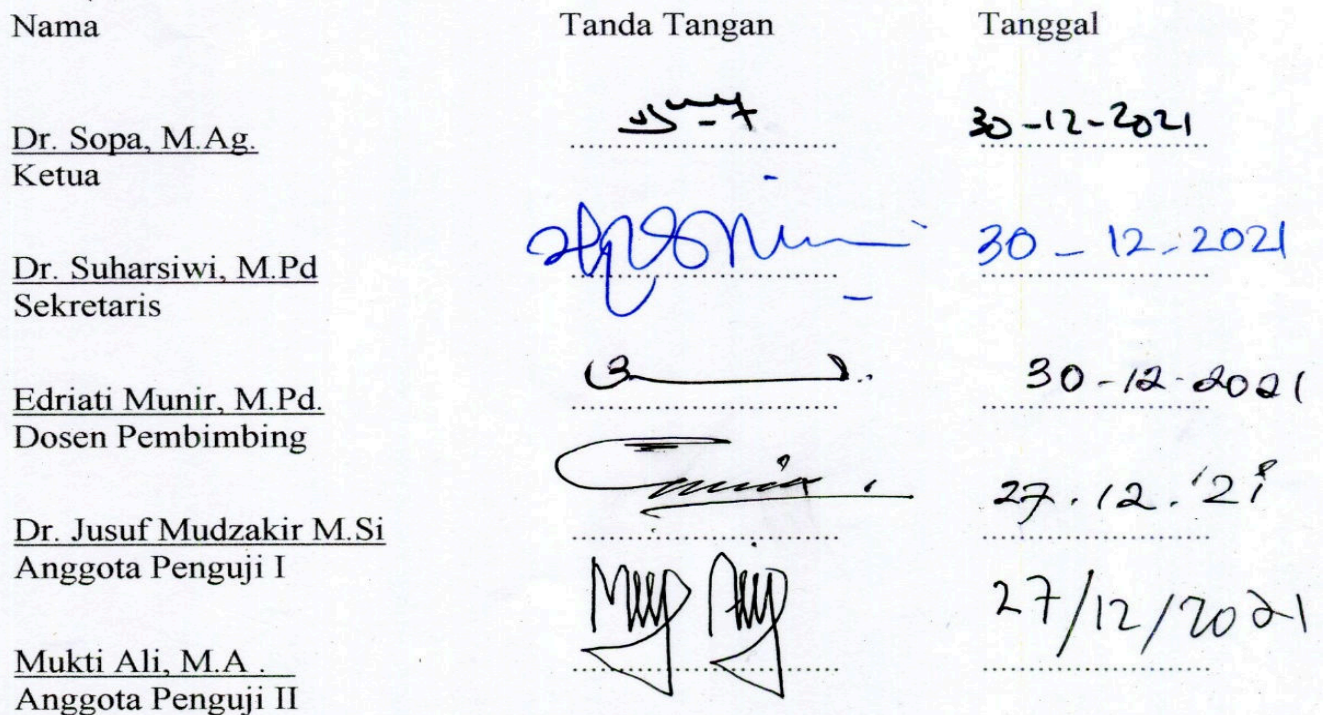 Nama Tanda Tangan Tanggal
30-12-2021
Dr. Sopa, M.Ag.
Ketua
30 - 12 - 2021
Dr. Suharsiwi, M.Pd
Sekretaris
30-12-2021
Edriati Munir, M.Pd.
Dosen Pembimbing
27.12.'21
Dr. Jusuf Mudzakir M.Si
Anggota Penguji I
27/12/2021
Mukti Ali, M.A .
Anggota Penguji II